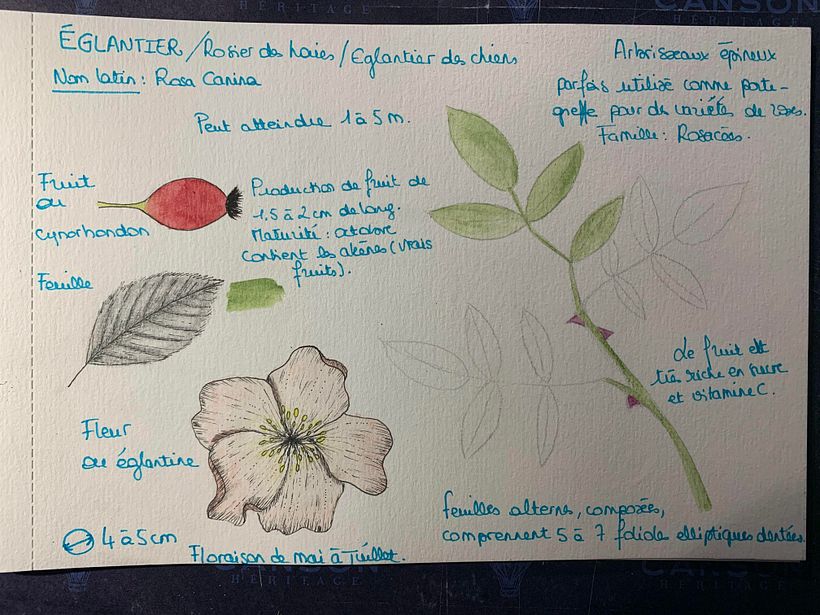 ÉGLANTIER / Rosier des haies / Eglantier des chiens
Nom latin : Rosa Canina
Peut atteindre 1 à 5 m.
Arbrisseaux épineux
parfois utilisé comme porte-
greffe pour des variétés de roses.
Famille : Rosacées.
Fruit
ou
cynorhondon
Production de fruit de
1.5 à 2 cm de long.
Maturité : octobre
contient les akènes (vrais
fruits).
Feuille
Le fruit est
très riche en sucre
et vitamine C.
Fleur
ou églantine
4 à 5 cm
Floraison de mai à Juillet.
feuilles alternes, composées,
comprennent 5 à 7 foliole elliptiques dentées.
CANSON
HÉRITAGE
CANSON
HÉRITAGE
HÉRITAGE
CANSON
HÉRITAGE